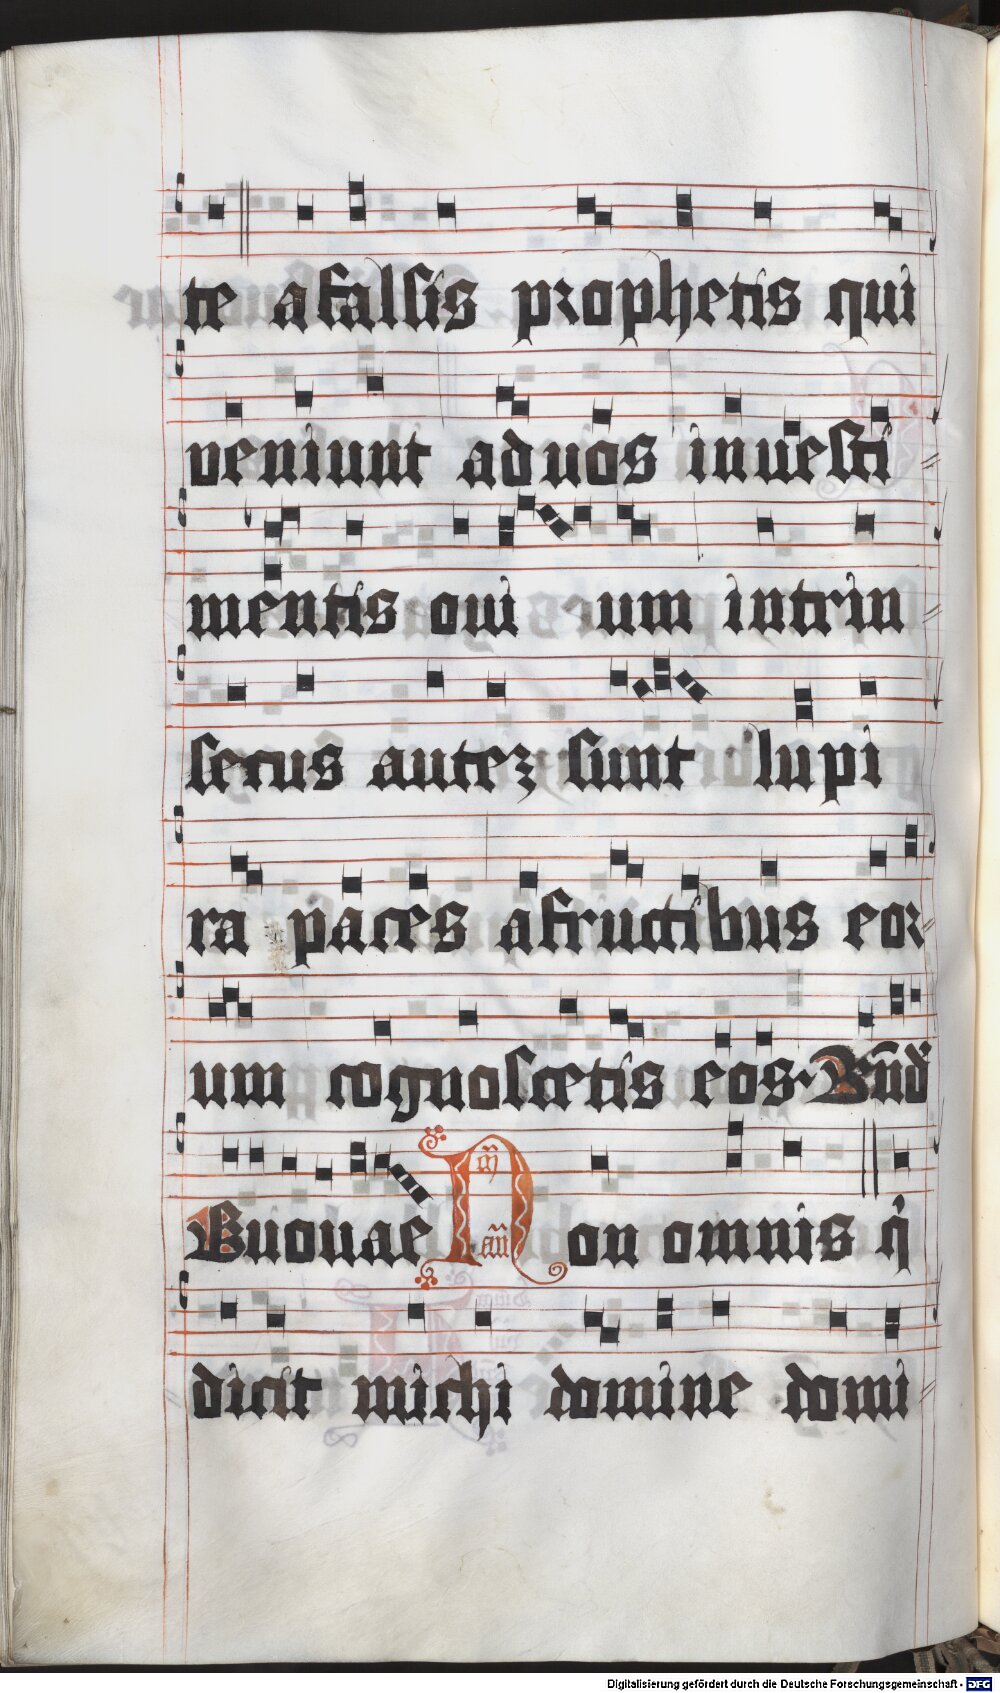 te a falsis prophetis qui
veniunt ad uos in uesti
mentis oui um intrin
secus autez sunt lupi
ra paces a fructibus eor
um cognoscetis eos. Bn̄d
Euouae Non omnis q̇
dicit michi domine domi
Digitalisierung gefördert durch die Deutsche Forschungsgemeinschaft - DFG